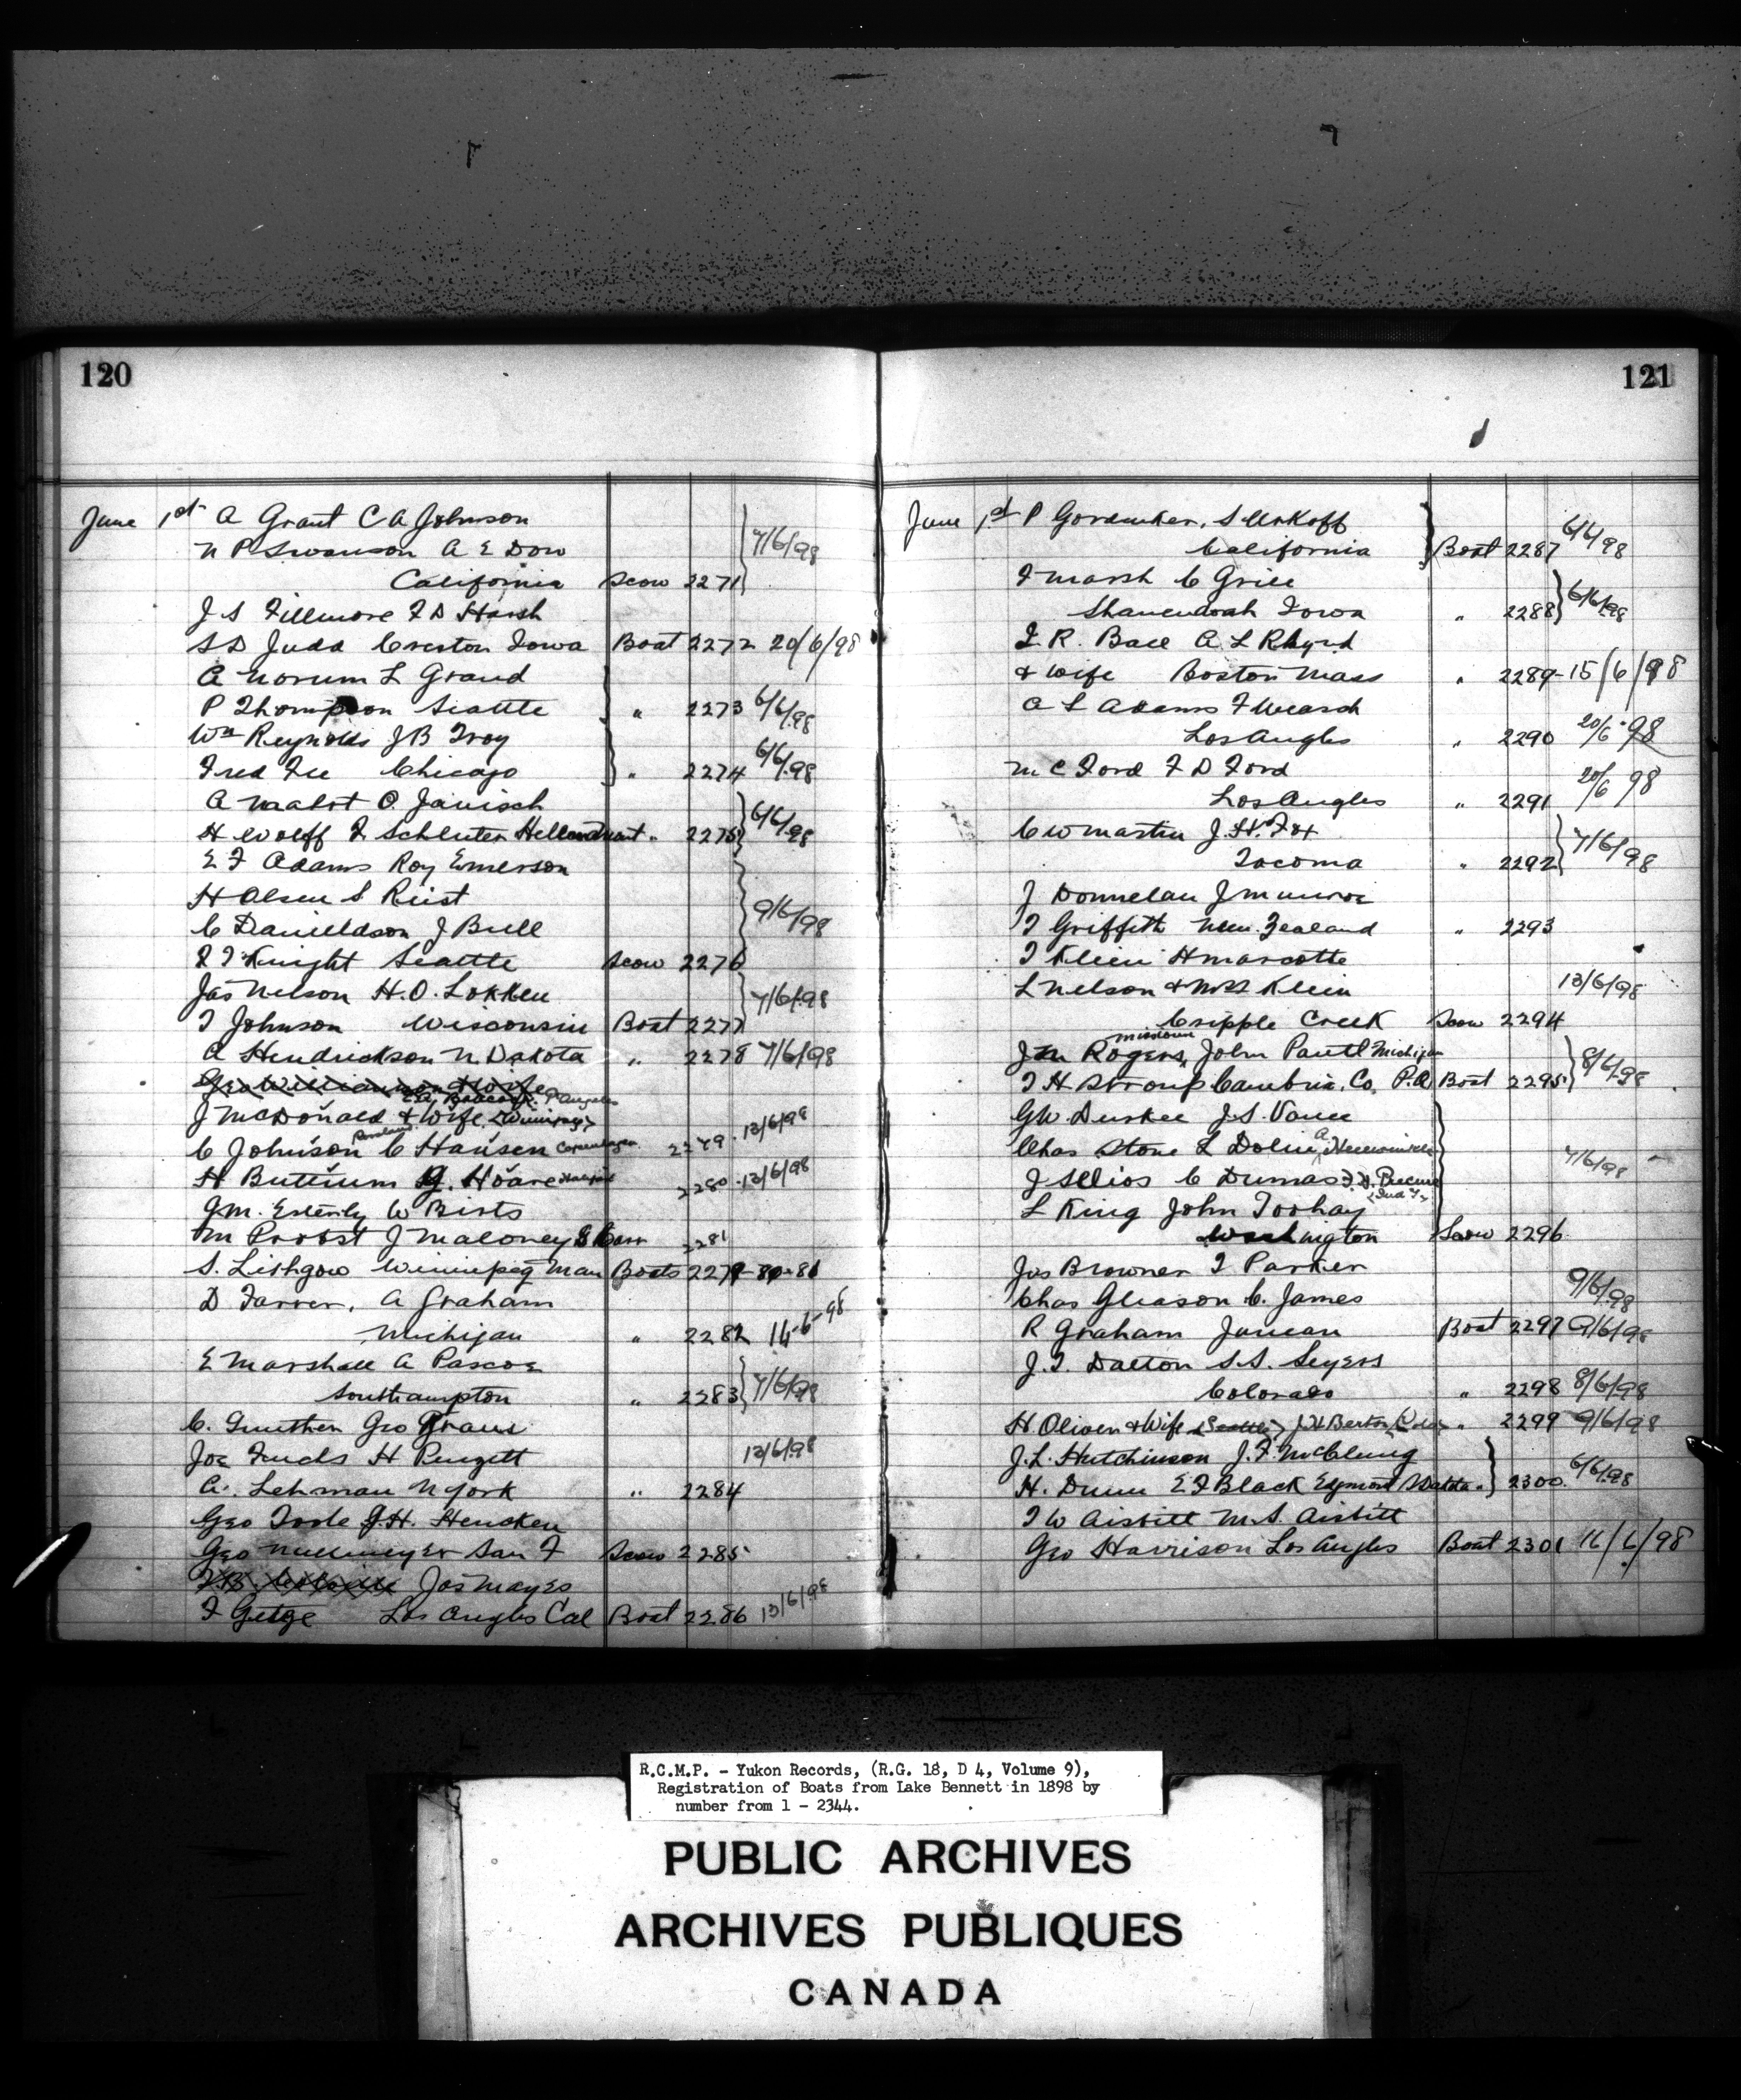 120
June 1st A Grant C A Johnson
N P Swanson A E Dow 7/6/98
California Scow 2271
J S Fillmore F D Harsh
S D Judd Creston Iowa Boat 2272 20/6/98
A Norum L Grand
P Thompson Seattle " 2273 6/6/98
Wm Reynolds J B Troy
Fred Fee Chicago " 2274 6/6/98
A Mabot O. Janisch
H Wolff F Schluter " 2275 6/6/98
E F Adams Roy Emerson
H Olsen S Rust
C Danieldson J Bull 9/6/98
F Knight Seattle Scow 2276
Jas Nelson H. O. Lokken 7/6/98
T Johnson Wisconsin Boat 2277
A Hendrickson N Dakota " 2278 7/6/98
Geo Williamson & Wife
P Angeles
J McDonald & Wife <Winnipeg>
C Johnson C Hansen Copenhagen 2279 · 13/6/98
H Buttrum G. Hoare 2280 · 13/6/98
J M. Esterly W Birts
M Probst J Maloney 2281
S. Lithgow Winnipeg Man Boats 2279-80-81
D Farrer. A Graham
Michigan " 2282 14-6-98
E Marshall A Pascoe
Southampton " 2283 7/6/98
C. Gunther Geo Kraus
Joe Fuchs H Pengett 13/6/98
A. Lehman N York " 2284
Geo Toole J. H. Hencken
Geo San F Scow 2285
Jas Mayes
F Getge Los Angles Cal Boat 2286 13/6/98
121
June 1st P
California Boat 2287 6/6/98
F Marsh C Grill
Shanendoah Iowa " 2288 6/6/98
F. R. Ball A L
& Wife Boston Mass " 2289 - 15/6/98
A L Adams F
Los Angles " 2290 20/6 98
M C Ford F D Ford
Los Angles " 2291 20/6 98
C W Martin J. H. Fox
Tacoma " 2292 7/6/98
J Donnelan J Munroe
T Griffith New Zealand " 2293
T Klein H Marcotte
L Nelson & Mrs Klein 13/6/98
Cripple Creek Scow 2294
Missouri
J M Rogers, John Pautl Michigan
T H Stroup Cambria Co. P.A Boat 2295 8/6/98
G W Durkee J. S. Vance
Chas Stone L Dolin A
J C Dumas 7/6/98
L King John Toohay
Washington Scow 2296
Jas Browner T Parker
Chas Gleason C. James 9/6/98
R Graham Juneau Boat 2297 9/6/98
J. T. Dalton S. S. Seyers
Colorado " 2298 8/6/98
H. Oliver & Wife <Seattle> J. H Berton " 2299 9/6/98
J. L. Hutchinson J. F. McClung
H. Dunn E F Black 2300 6/6/98
T W Aisbitt M. S. Aisbitt
Geo Harrison Los Angles Boat 2301 16/6/98
R.C.M.P. - Yukon Records, (R.G. 18, D 4, Volume 9),
Registration of Boats from Lake Bennett in 1898 by
number from 1 - 2344.
PUBLIC ARCHIVES
ARCHIVES PUBLIQUES
CANADA